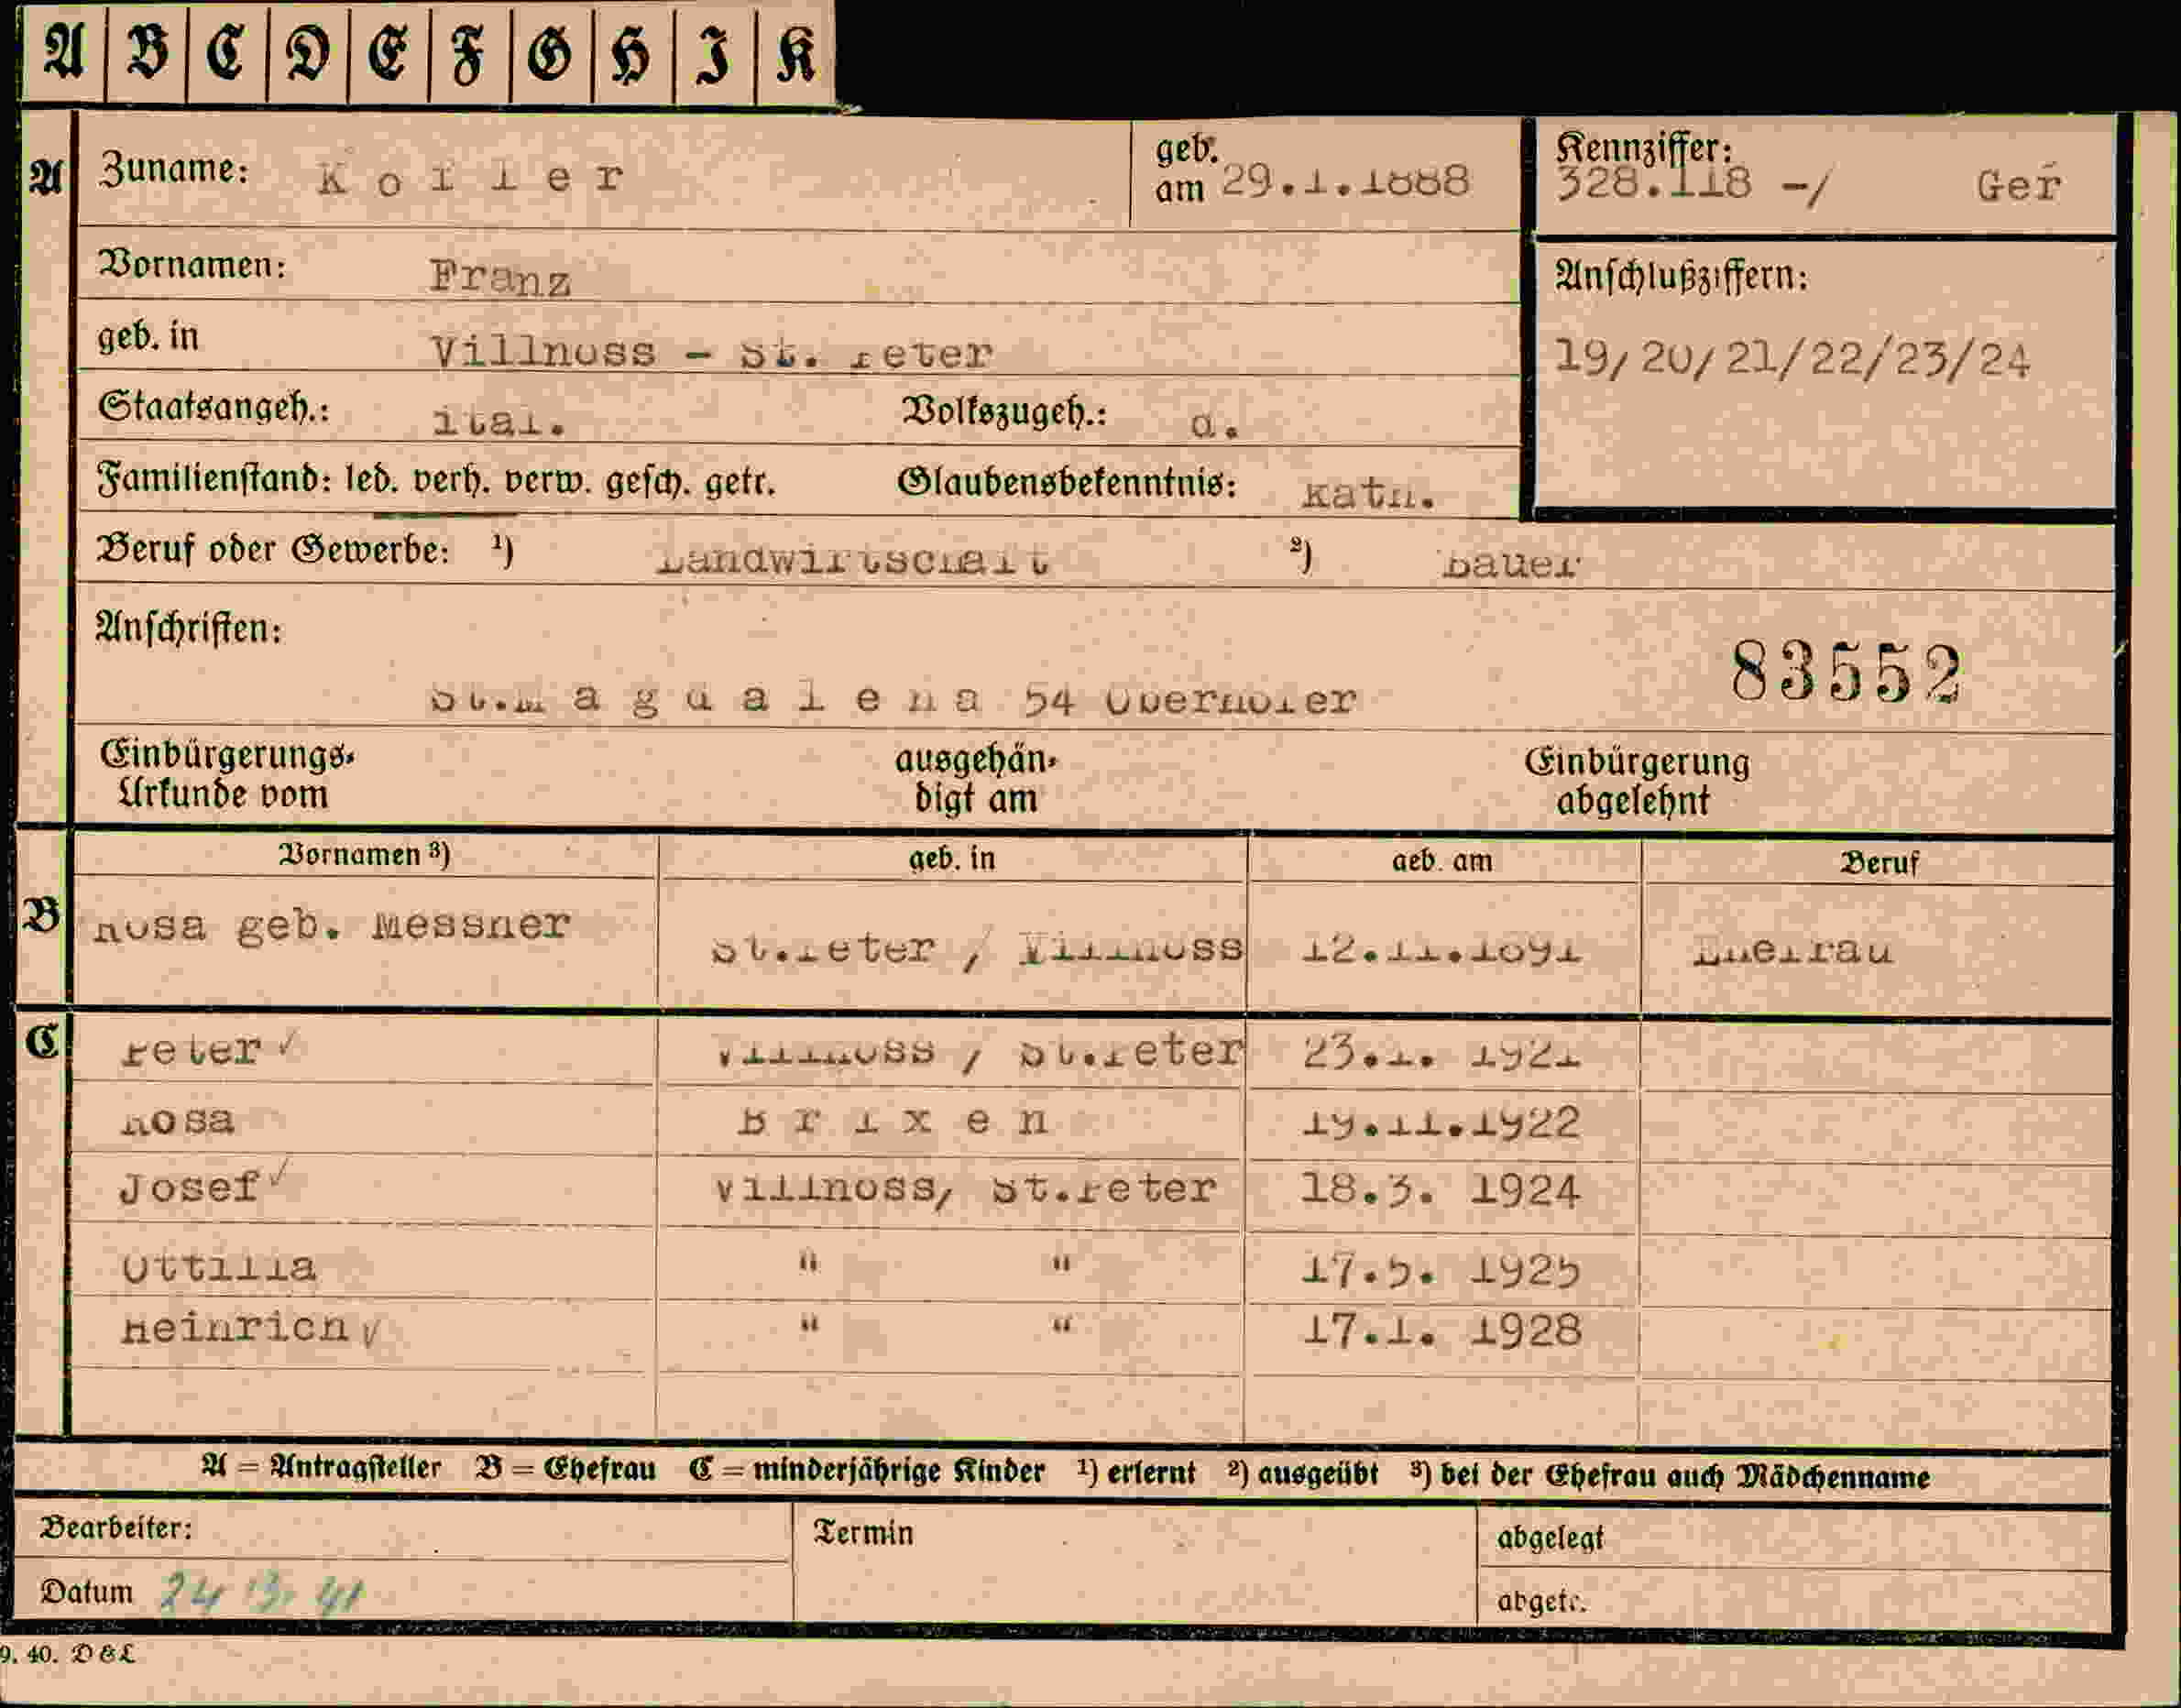 A B C D E F G H I K
A Zuname: Kofler geb. am 29.1.1888 Kennziffer: 328.118 -/ Ger
Vornamen: Franz Anschlußziffern:
geb. in Villnöss - St. Peter 19/20/21/22/23/24
Staatsangeh.: ital. Volkszugeh.: d.
Familienstand: led. verh. verw. gesch. getr. Glaubensbekenntnis: kath.
Beruf oder Gewerbe: ¹) Landwirtschaft ²) Bauer
Anschriften: 83552
St.Magdalena 54 Oberhofer
Einbürgerungs- ausgehän- Einbürgerung
Urkunde vom digt am abgelehnt
Vornamen ³) geb. in geb. am Beruf
B Rosa geb. Messner St.Peter / Villnöss 12.11.1891 Ehefrau
C Peter ✓ Villnöss / St.Peter 23.1. 1921
Rosa Brixen 19.11.1922
Josef ✓ Villnöss, St.Peter 18.3. 1924
Ottilia " " 17.5. 1925
Heinrich ✓ " " 17.1. 1928
A = Antragsteller B = Ehefrau C = minderjährige Kinder ¹) erlernt ²) ausgeübt ³) bei der Ehefrau auch Mädchenname
Bearbeiter: Termin abgelegt
Datum 24 3. 41 abgetr.
9. 40. D & L